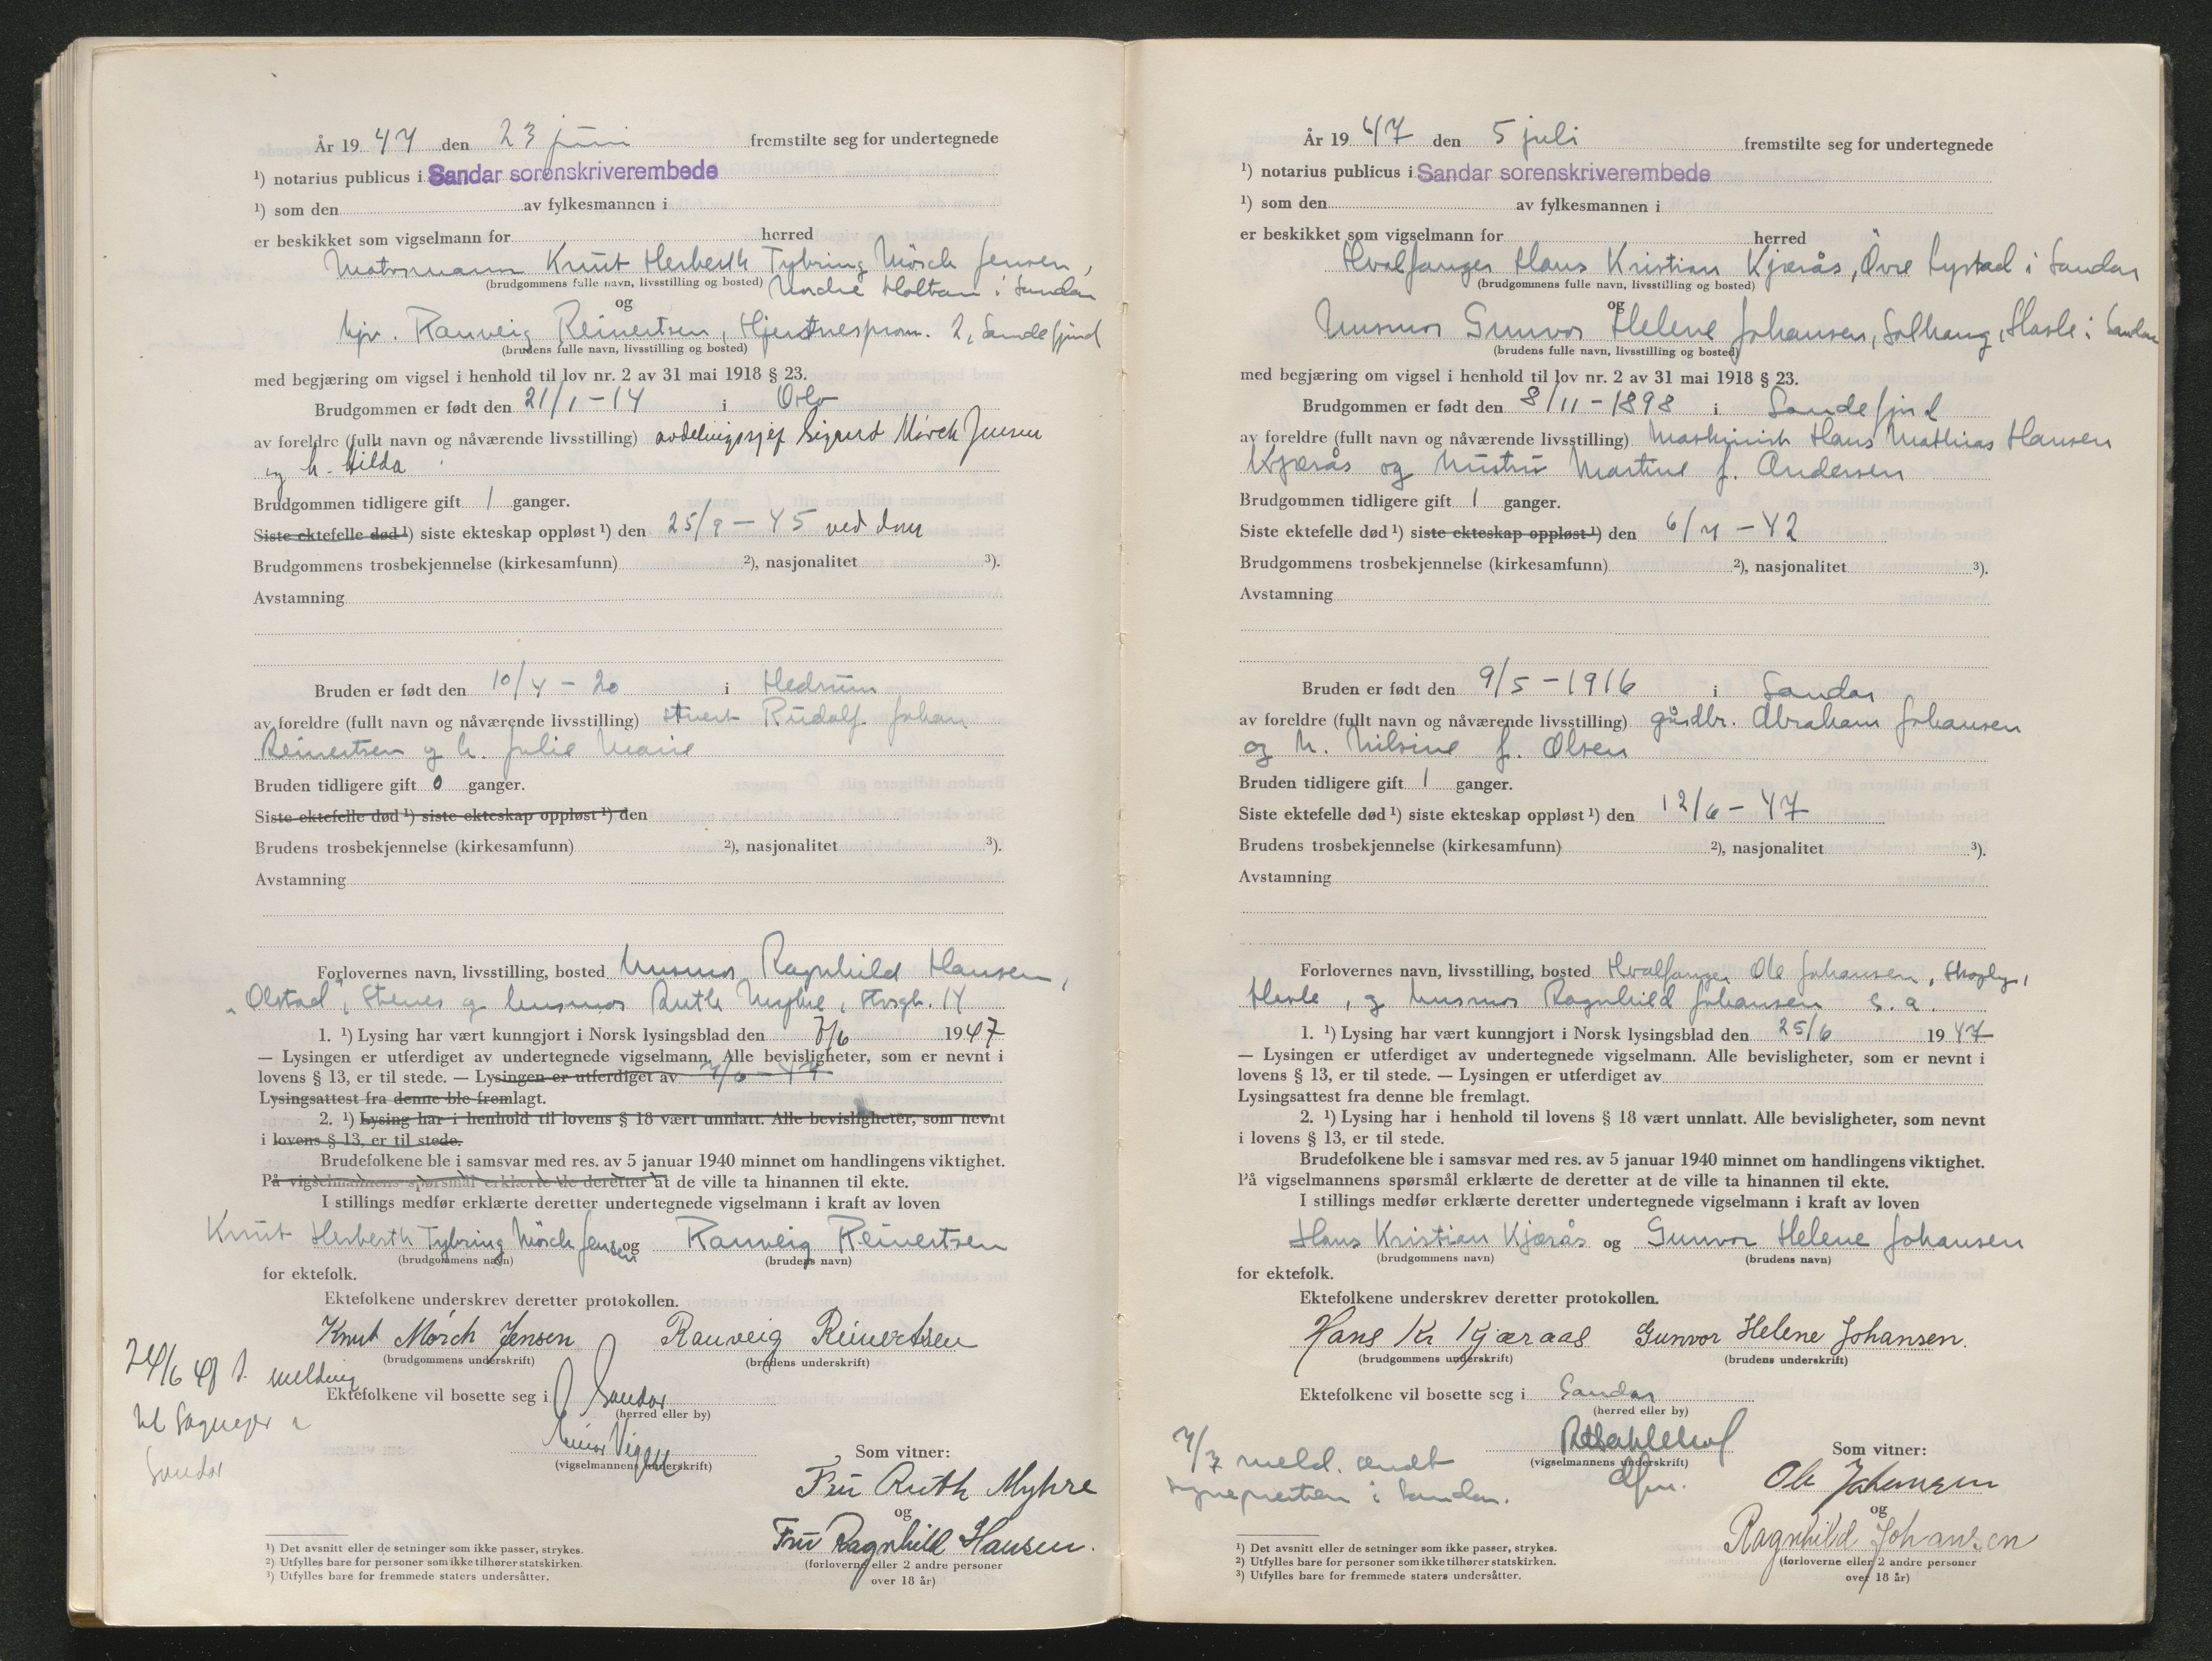 År 1947 den 23 juni fremstilte seg for undertegnede
¹) notarius publicus i Sandar sorenskriverembede
¹) som den av fylkesmannen i
er beskikket som vigselmann for herred
Knut Herberth Tybring Mørch Jensen,
(brudgommens fulle navn, livsstilling og bosted) Nordre Holtan i Sandar
og
hjv. Rauveig Reinertsen, Hjertnesprom. 2, Sandefjord
(brudens fulle navn, livsstilling og bosted)
med begjæring om vigsel i henhold til lov nr. 2 av 31 mai 1918 § 23.
Brudgommen er født den 21/1-14 i Oslo
av foreldre (fullt navn og nåværende livsstilling) avdelingssjef Sigurd Mørch Jensen
og h. Hilda
Brudgommen tidligere gift 1 ganger.
Siste ektefelle død ¹) siste ekteskap oppløst ¹) den 25/9-45 ved dom
Brudgommens trosbekjennelse (kirkesamfunn) ²), nasjonalitet ³).
Avstamning
Bruden er født den 10/4-20 i Hedrum
av foreldre (fullt navn og nåværende livsstilling) stuert Rudolf Johan
Reinertsen og h. Julie Marie
Bruden tidligere gift 0 ganger.
Siste ektefelle død ¹) siste ekteskap oppløst ¹) den
Brudens trosbekjennelse (kirkesamfunn) ²), nasjonalitet ³).
Avstamning
Forlovernes navn, livsstilling, bosted husmor Ragnhild Hansen,
"Olstad", Stenes og husmor Ruth Myhre, 14
1. ¹) Lysing har vært kunngjort i Norsk lysingsblad den 7/6 1947
— Lysingen er utferdiget av undertegnede vigselmann. Alle bevisligheter, som er nevnt i
lovens § 13, er til stede. — Lysingen er utferdiget av 7/6-47
Lysingsattest fra denne ble fremlagt.
2. ¹) Lysing har i henhold til lovens § 18 vært unnlatt. Alle bevisligheter, som nevnt
i lovens § 13, er til stede.
Brudefolkene ble i samsvar med res. av 5 januar 1940 minnet om handlingens viktighet.
På vigselmannens spørsmål erklærte de deretter at de ville ta hinannen til ekte.
I stillings medfør erklærte deretter undertegnede vigselmann i kraft av loven
Knut Herberth Tybring Mørch Jensen og Rauveig Reinertsen
(brudgommens navn) (brudens navn)
for ektefolk.
Ektefolkene underskrev deretter protokollen.
Knut Mørch Jensen Rauveig Reinertsen
(brudgommens underskrift) (brudens underskrift)
24/6 47 s. melding
Ektefolkene vil bosette seg i Sandar
(herred eller by)
til Sognepr i
Sandar
Einar Viggen
(vigselmannens underskrift)
Som vitner:
Fru Ruth Myhre
og
Fru Ragnhild Hansen.
(forloverne eller 2 andre personer
over 18 år)
¹) Det avsnitt eller de setninger som ikke passer, strykes.
²) Utfylles bare for personer som ikke tilhører statskirken.
³) Utfylles bare for fremmede staters undersåtter.
År 1947 den 5 juli fremstilte seg for undertegnede
¹) notarius publicus i Sandar sorenskriverembede
¹) som den av fylkesmannen i
er beskikket som vigselmann for herred
Hvalfanger Hans Kristian Kjærås, Øvre Lystad i Sandar
(brudgommens fulle navn, livsstilling og bosted)
og
Husmor Gunvor Helene Johansen, Solhaug, Hasle i Sandar
(brudens fulle navn, livsstilling og bosted)
med begjæring om vigsel i henhold til lov nr. 2 av 31 mai 1918 § 23.
Brudgommen er født den 8/11-1898 i Sandefjord
av foreldre (fullt navn og nåværende livsstilling) Maskinist Hans Mathias Hansen
Kjærås og hustru Martine f. Andersen
Brudgommen tidligere gift 1 ganger.
Siste ektefelle død ¹) siste ekteskap oppløst ¹) den 6/7-42
Brudgommens trosbekjennelse (kirkesamfunn) ²), nasjonalitet ³).
Avstamning
Bruden er født den 9/5-1916 i Sandar
av foreldre (fullt navn og nåværende livsstilling) gårdbr. Abraham Johansen
og h. Nilsine f. Olsen
Bruden tidligere gift 1 ganger.
Siste ektefelle død ¹) siste ekteskap oppløst ¹) den 12/6-47
Brudens trosbekjennelse (kirkesamfunn) ²), nasjonalitet ³).
Avstamning
Forlovernes navn, livsstilling, bosted Hvalfanger Ole Johansen,
Hasle, og husmor Ragnhild Johansen s. a.
1. ¹) Lysing har vært kunngjort i Norsk lysingsblad den 25/6 1947
— Lysingen er utferdiget av undertegnede vigselmann. Alle bevisligheter, som er nevnt i
lovens § 13, er til stede. — Lysingen er utferdiget av
Lysingsattest fra denne ble fremlagt.
2. ¹) Lysing har i henhold til lovens § 18 vært unnlatt. Alle bevisligheter, som nevnt
i lovens § 13, er til stede.
Brudefolkene ble i samsvar med res. av 5 januar 1940 minnet om handlingens viktighet.
På vigselmannens spørsmål erklærte de deretter at de ville ta hinannen til ekte.
I stillings medfør erklærte deretter undertegnede vigselmann i kraft av loven
Hans Kristian Kjærås og Gunvor Helene Johansen
(brudgommens navn) (brudens navn)
for ektefolk.
Ektefolkene underskrev deretter protokollen.
Hans Kr Kjæraas Gunvor Helene Johansen.
(brudgommens underskrift) (brudens underskrift)
Ektefolkene vil bosette seg i Sandar
(herred eller by)
7/7 meld. sendt
sognepresten i Sandar.
(vigselmannens underskrift)
dfm.
Som vitner:
Ole Johansen
og
Ragnhild Johansen
(forloverne eller 2 andre personer
over 18 år)
¹) Det avsnitt eller de setninger som ikke passer, strykes.
²) Utfylles bare for personer som ikke tilhører statskirken.
³) Utfylles bare for fremmede staters undersåtter.